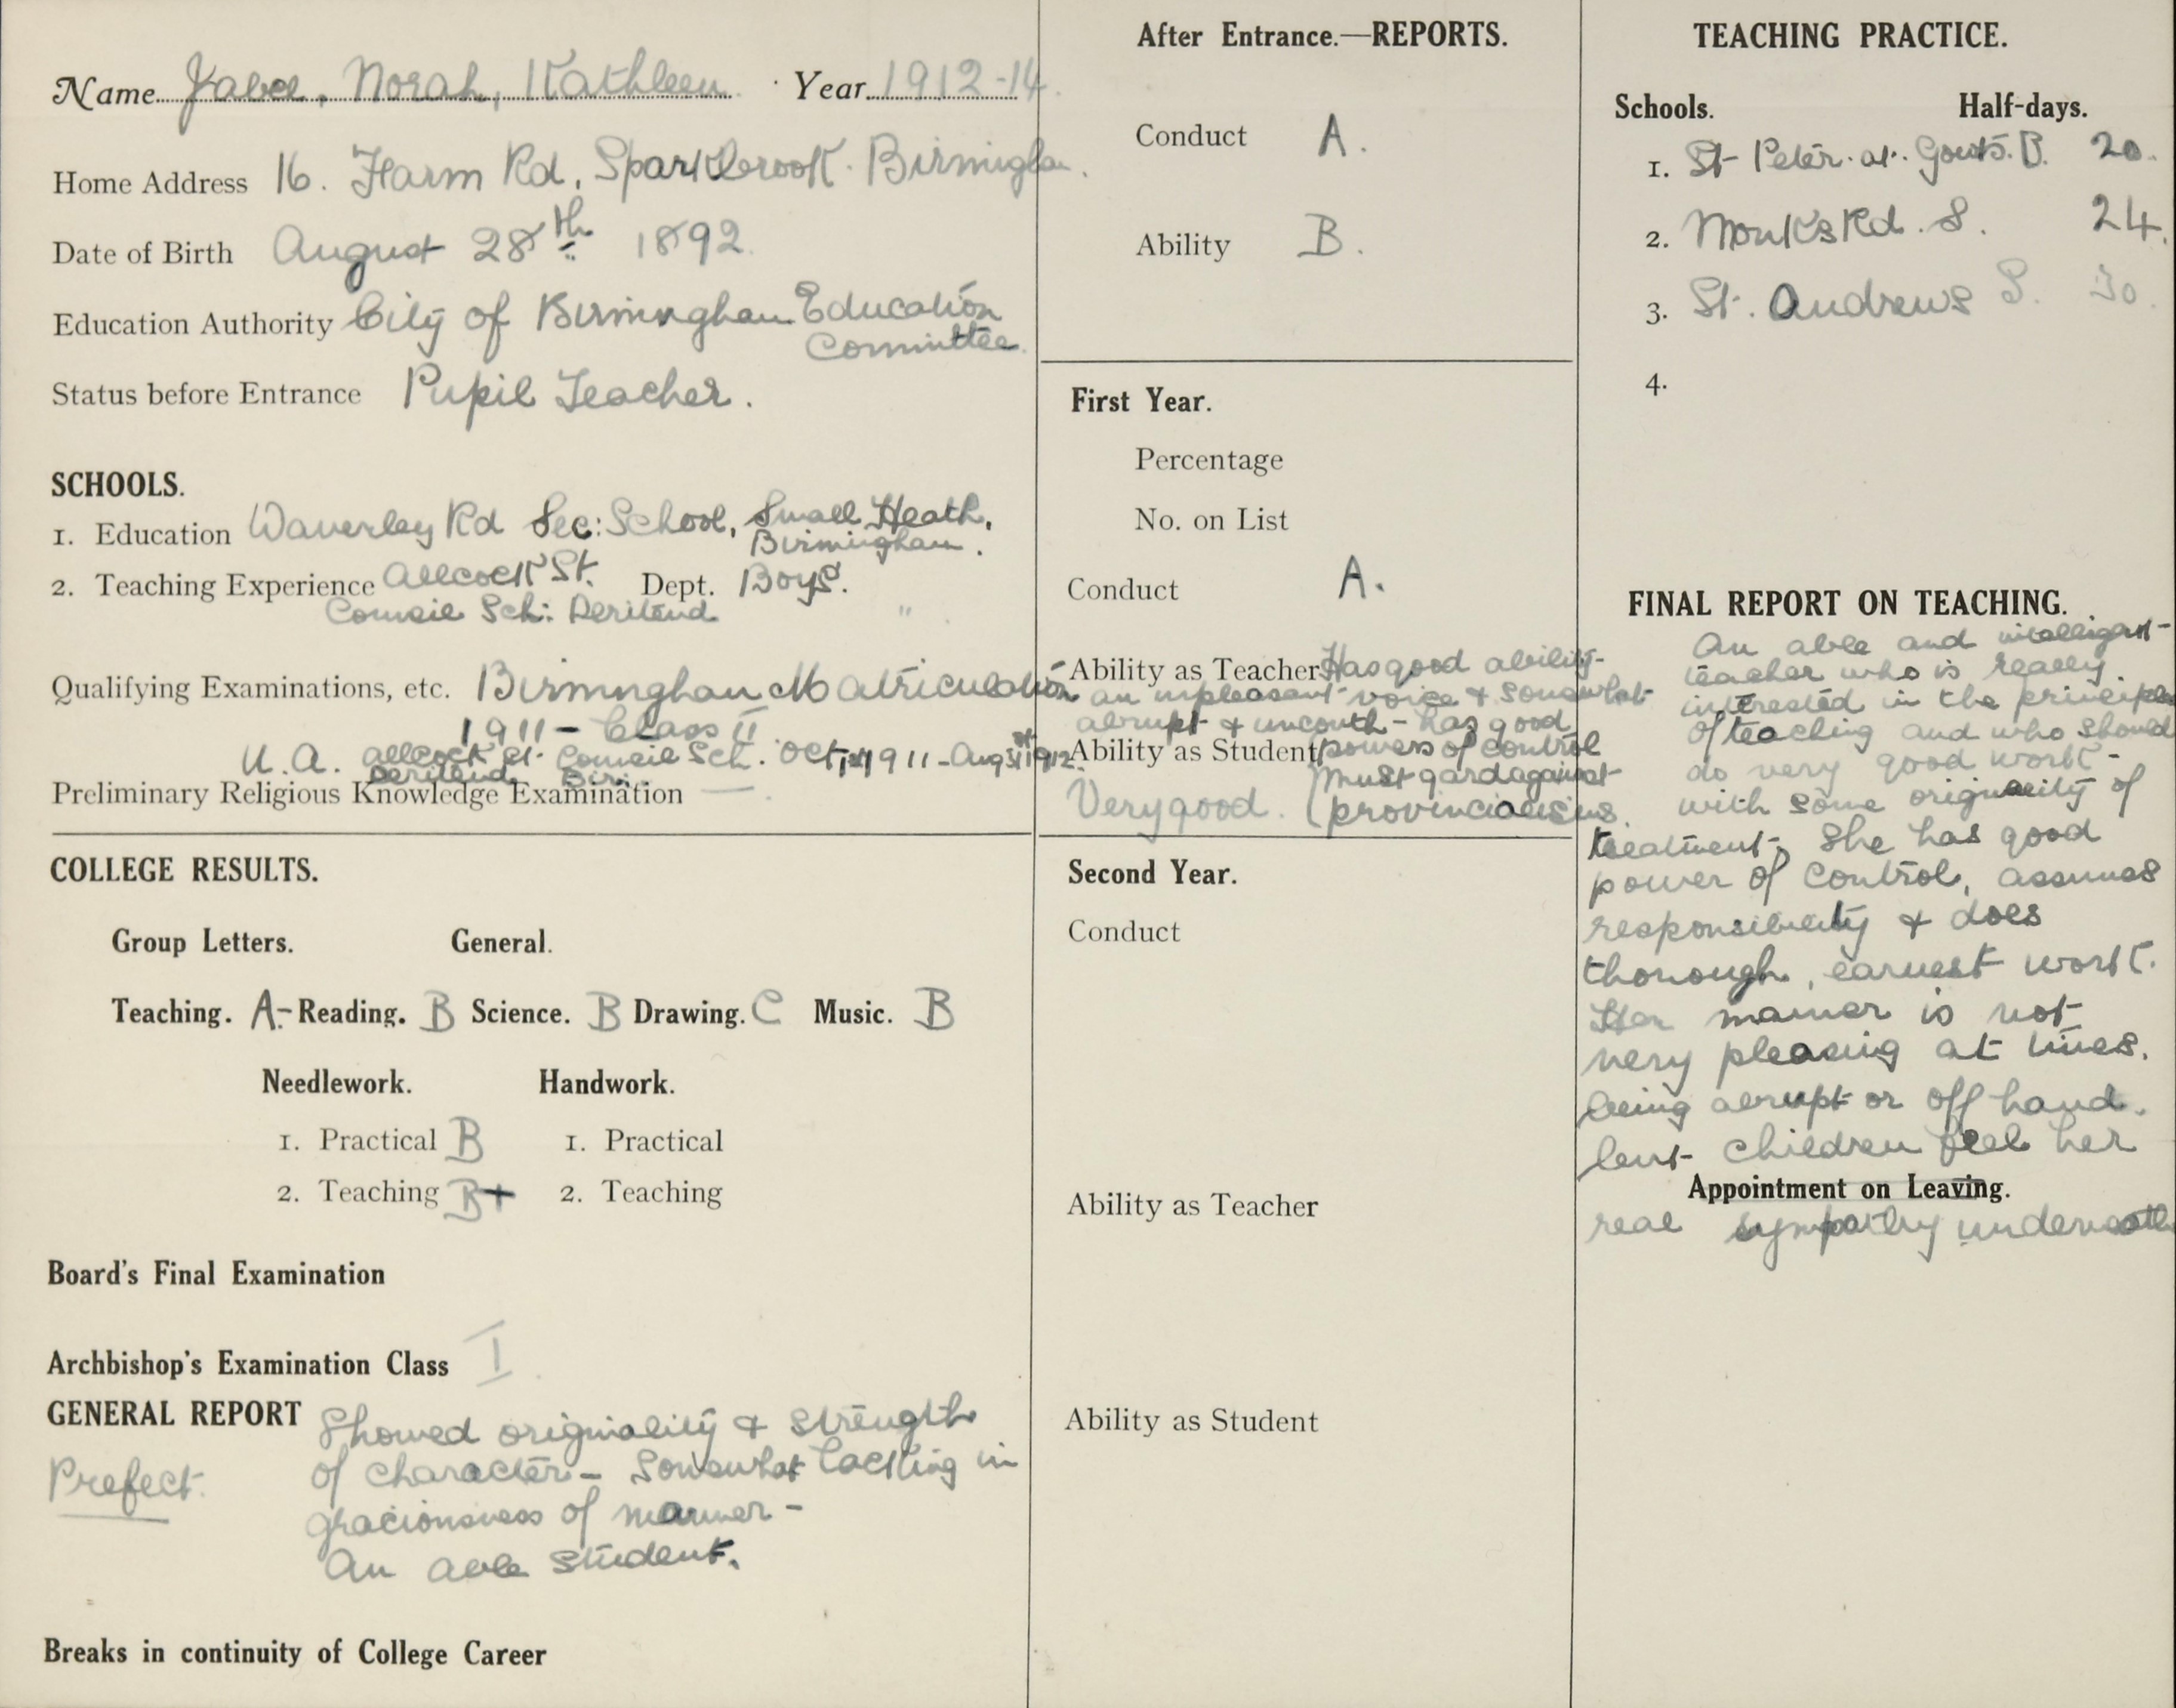 Name Jabee, Norah, Kathleen. Year 1912-14.
Home Address 16. Farm Rd, Sparkbrook. Birmingham.
Date of Birth August 28th 1892.
Education Authority City of Birmingham Education
Committee.
Status before Entrance Pupil Teacher.
SCHOOLS.
1. Education Waverley Rd Sec: School, Small Heath,
Birmingham.
2. Teaching Experience Allcock St. Dept. Boys.
Council Sch: Deritend "
Qualifying Examinations, etc. Birmingham Matriculation
1911 - Class II
U.A. Allcock St. Council Sch. Oct 1911 - Aug 31st 1912.
Deritend, Birm.
Preliminary Religious Knowledge Examination —.
COLLEGE RESULTS.
Group Letters. General.
Teaching. A- Reading. B Science. B Drawing. C Music. B
Needlework. Handwork.
1. Practical B 1. Practical
2. Teaching B+ 2. Teaching
Board's Final Examination
Archbishop's Examination Class I.
GENERAL REPORT Showed originality & strength
Prefect. of character - Somewhat lacking in
graciousness of manner -
An able student.
Breaks in continuity of College Career
After Entrance.—REPORTS.
Conduct A.
Ability B.
First Year.
Percentage
No. on List
Conduct A.
Ability as Teacher Has good ability -
an unpleasant voice & somewhat
abrupt & uncouth - has good
Ability as Student powers of control
Must gard against
Very good. (provincialisms.
Second Year.
Conduct
Ability as Teacher
Ability as Student
TEACHING PRACTICE.
Schools. Half-days.
1. St Peter. at. Gowts. B. 20.
2. Monks Rd. S. 24.
3. St. Andrews S. 30.
4.
FINAL REPORT ON TEACHING.
An able and intelligent
teacher who is really
interested in the principles
of teaching and who should
do very good work -
with some originality of
treatment. She has good
power of control, assumes
responsibility & does
thorough, earnest work.
Her manner is not
very pleasing at times.
being abrupt or off hand.
but children feel her
Appointment on Leaving.
real sympathy underneath